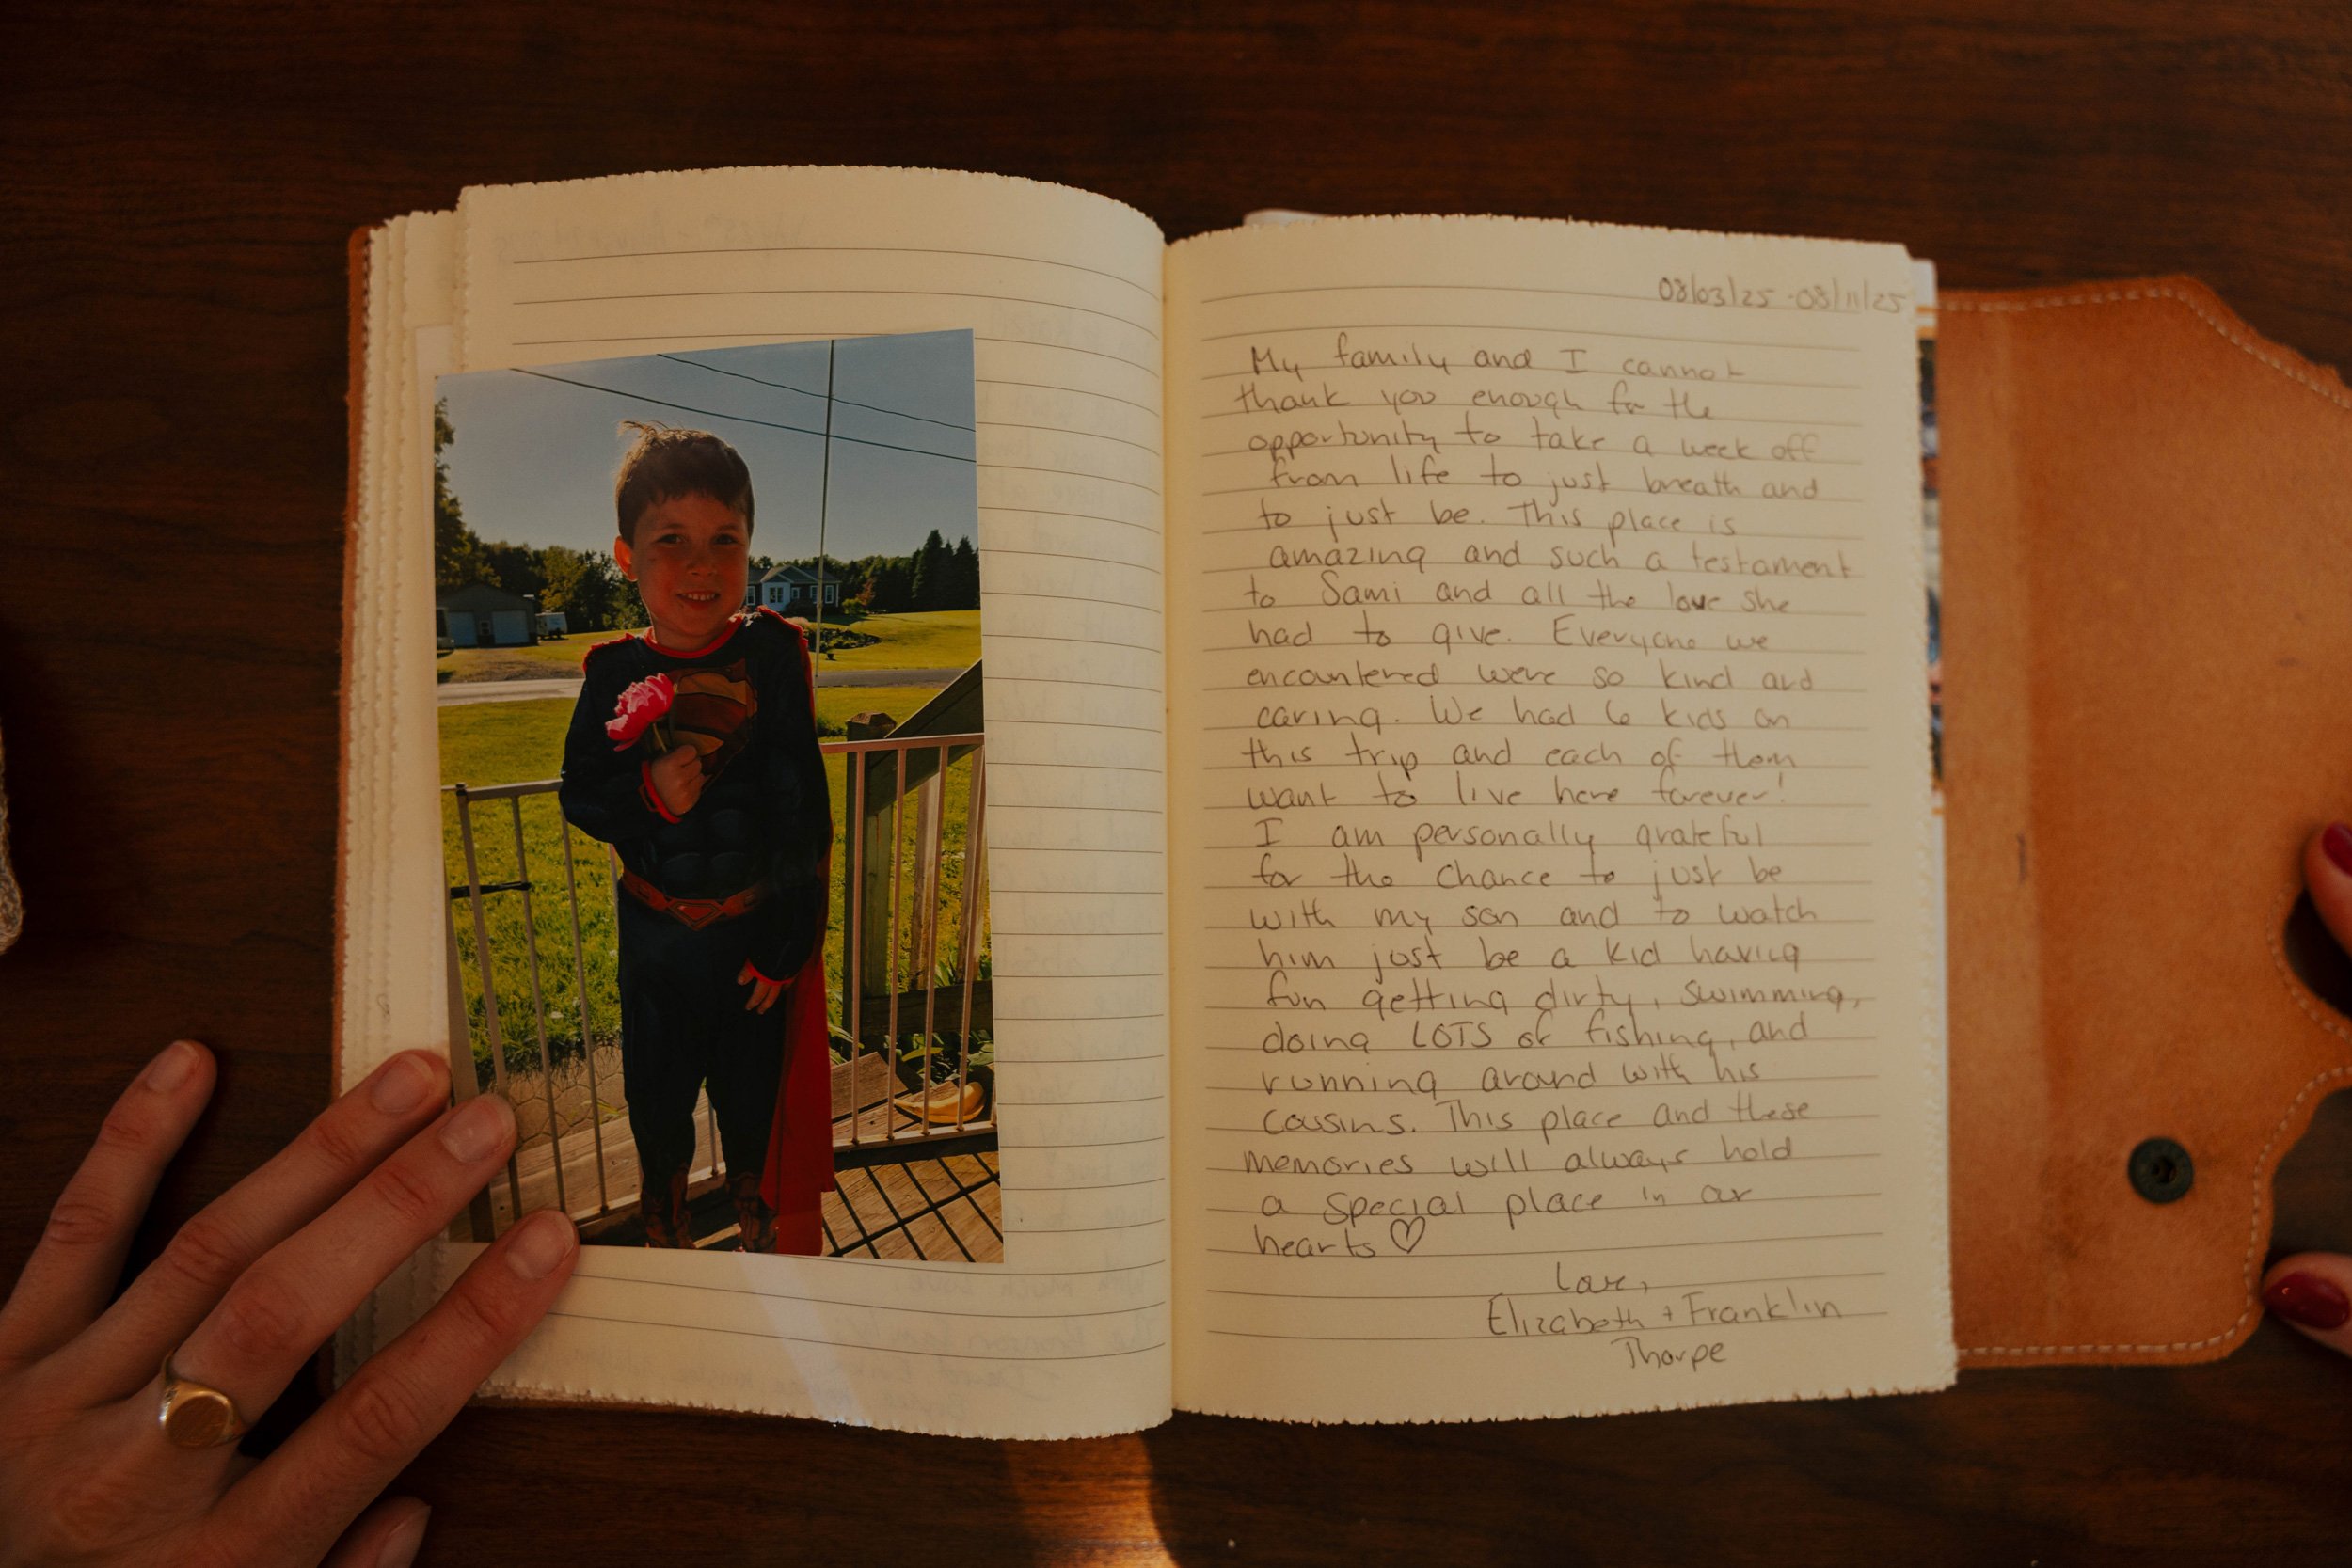 08/03/25 - 08/11/25
My family and I cannot
thank you enough for the
opportunity to take a week off
from life to just breath and
to just be. This place is
amazing and such a testament
to Sami and all the love she
had to give. Everyone we
encountered were so kind and
caring. We had 6 kids on
this trip and each of them
want to live here forever!
I am personally grateful
for the chance to just be
with my son and to watch
him just be a kid having
fun getting dirty, swimming,
doing LOTS of fishing, and
running around with his
cousins. This place and these
memories will always hold
a special place in our
hearts ♡
Love,
Elizabeth + Franklin
Thorpe